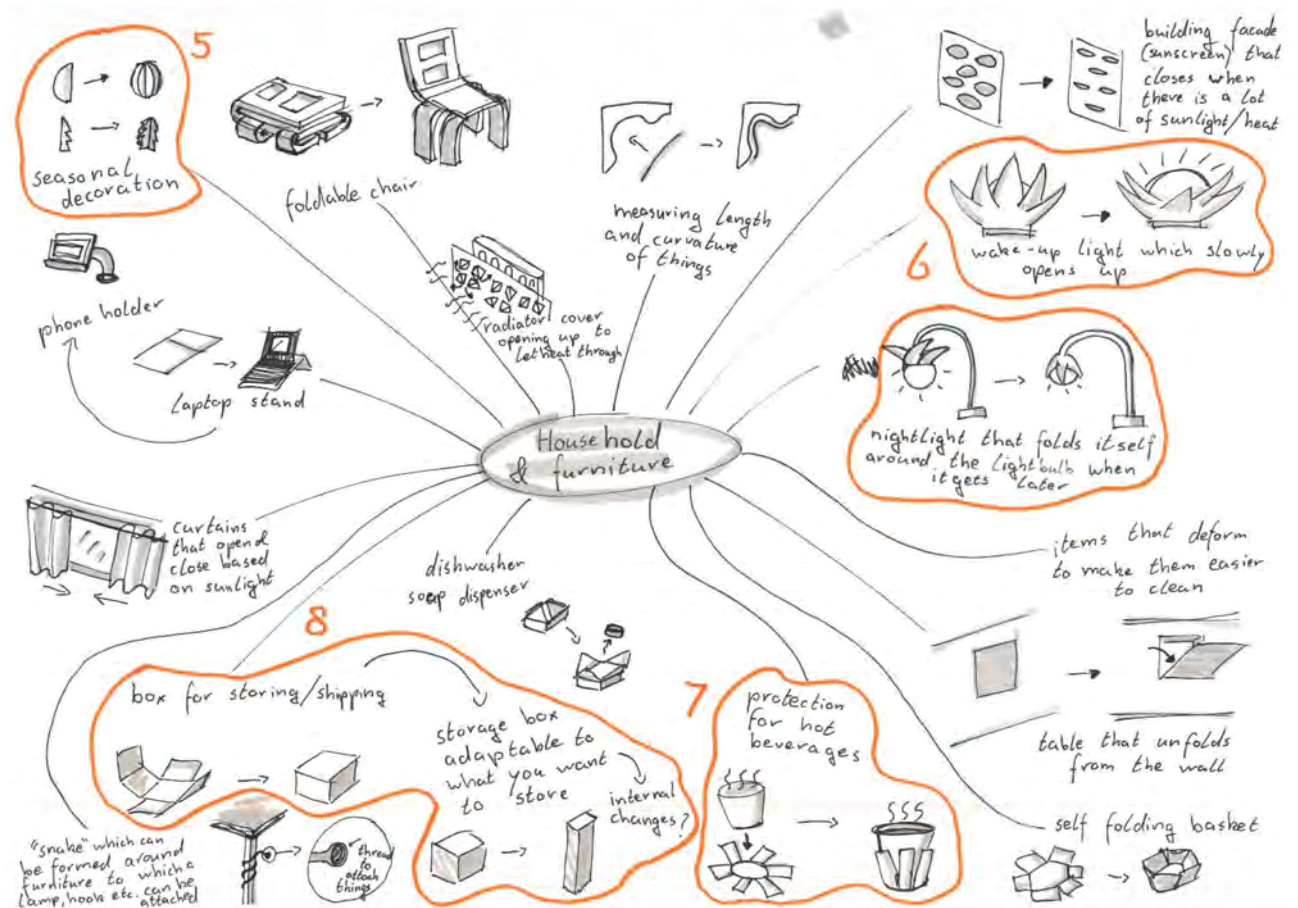 5
seasonal
decoration
foldable chair
measuring length
and curvature
of things
building facade
(sunscreen) that
closes when
there is a lot
of sunlight/heat
6
wake-up light which slowly
opens up
phone holder
laptop stand
radiator cover
opening up to
let heat through
nightlight that folds itself
around the lightbulb when
it gets later
Household
& furniture
curtains
that open &
close based
on sunlight
dishwasher
soap dispenser
items that deform
to make them easier
to clean
8
box for storing/shipping
storage box
adaptable to
what you want
to store
internal
changes?
7
protection
for hot
beverages
table that unfolds
from the wall
self folding basket
"snake" which can
be formed around
furniture to which a
lamp, hook etc. can be
attached
thread
to
attach
things